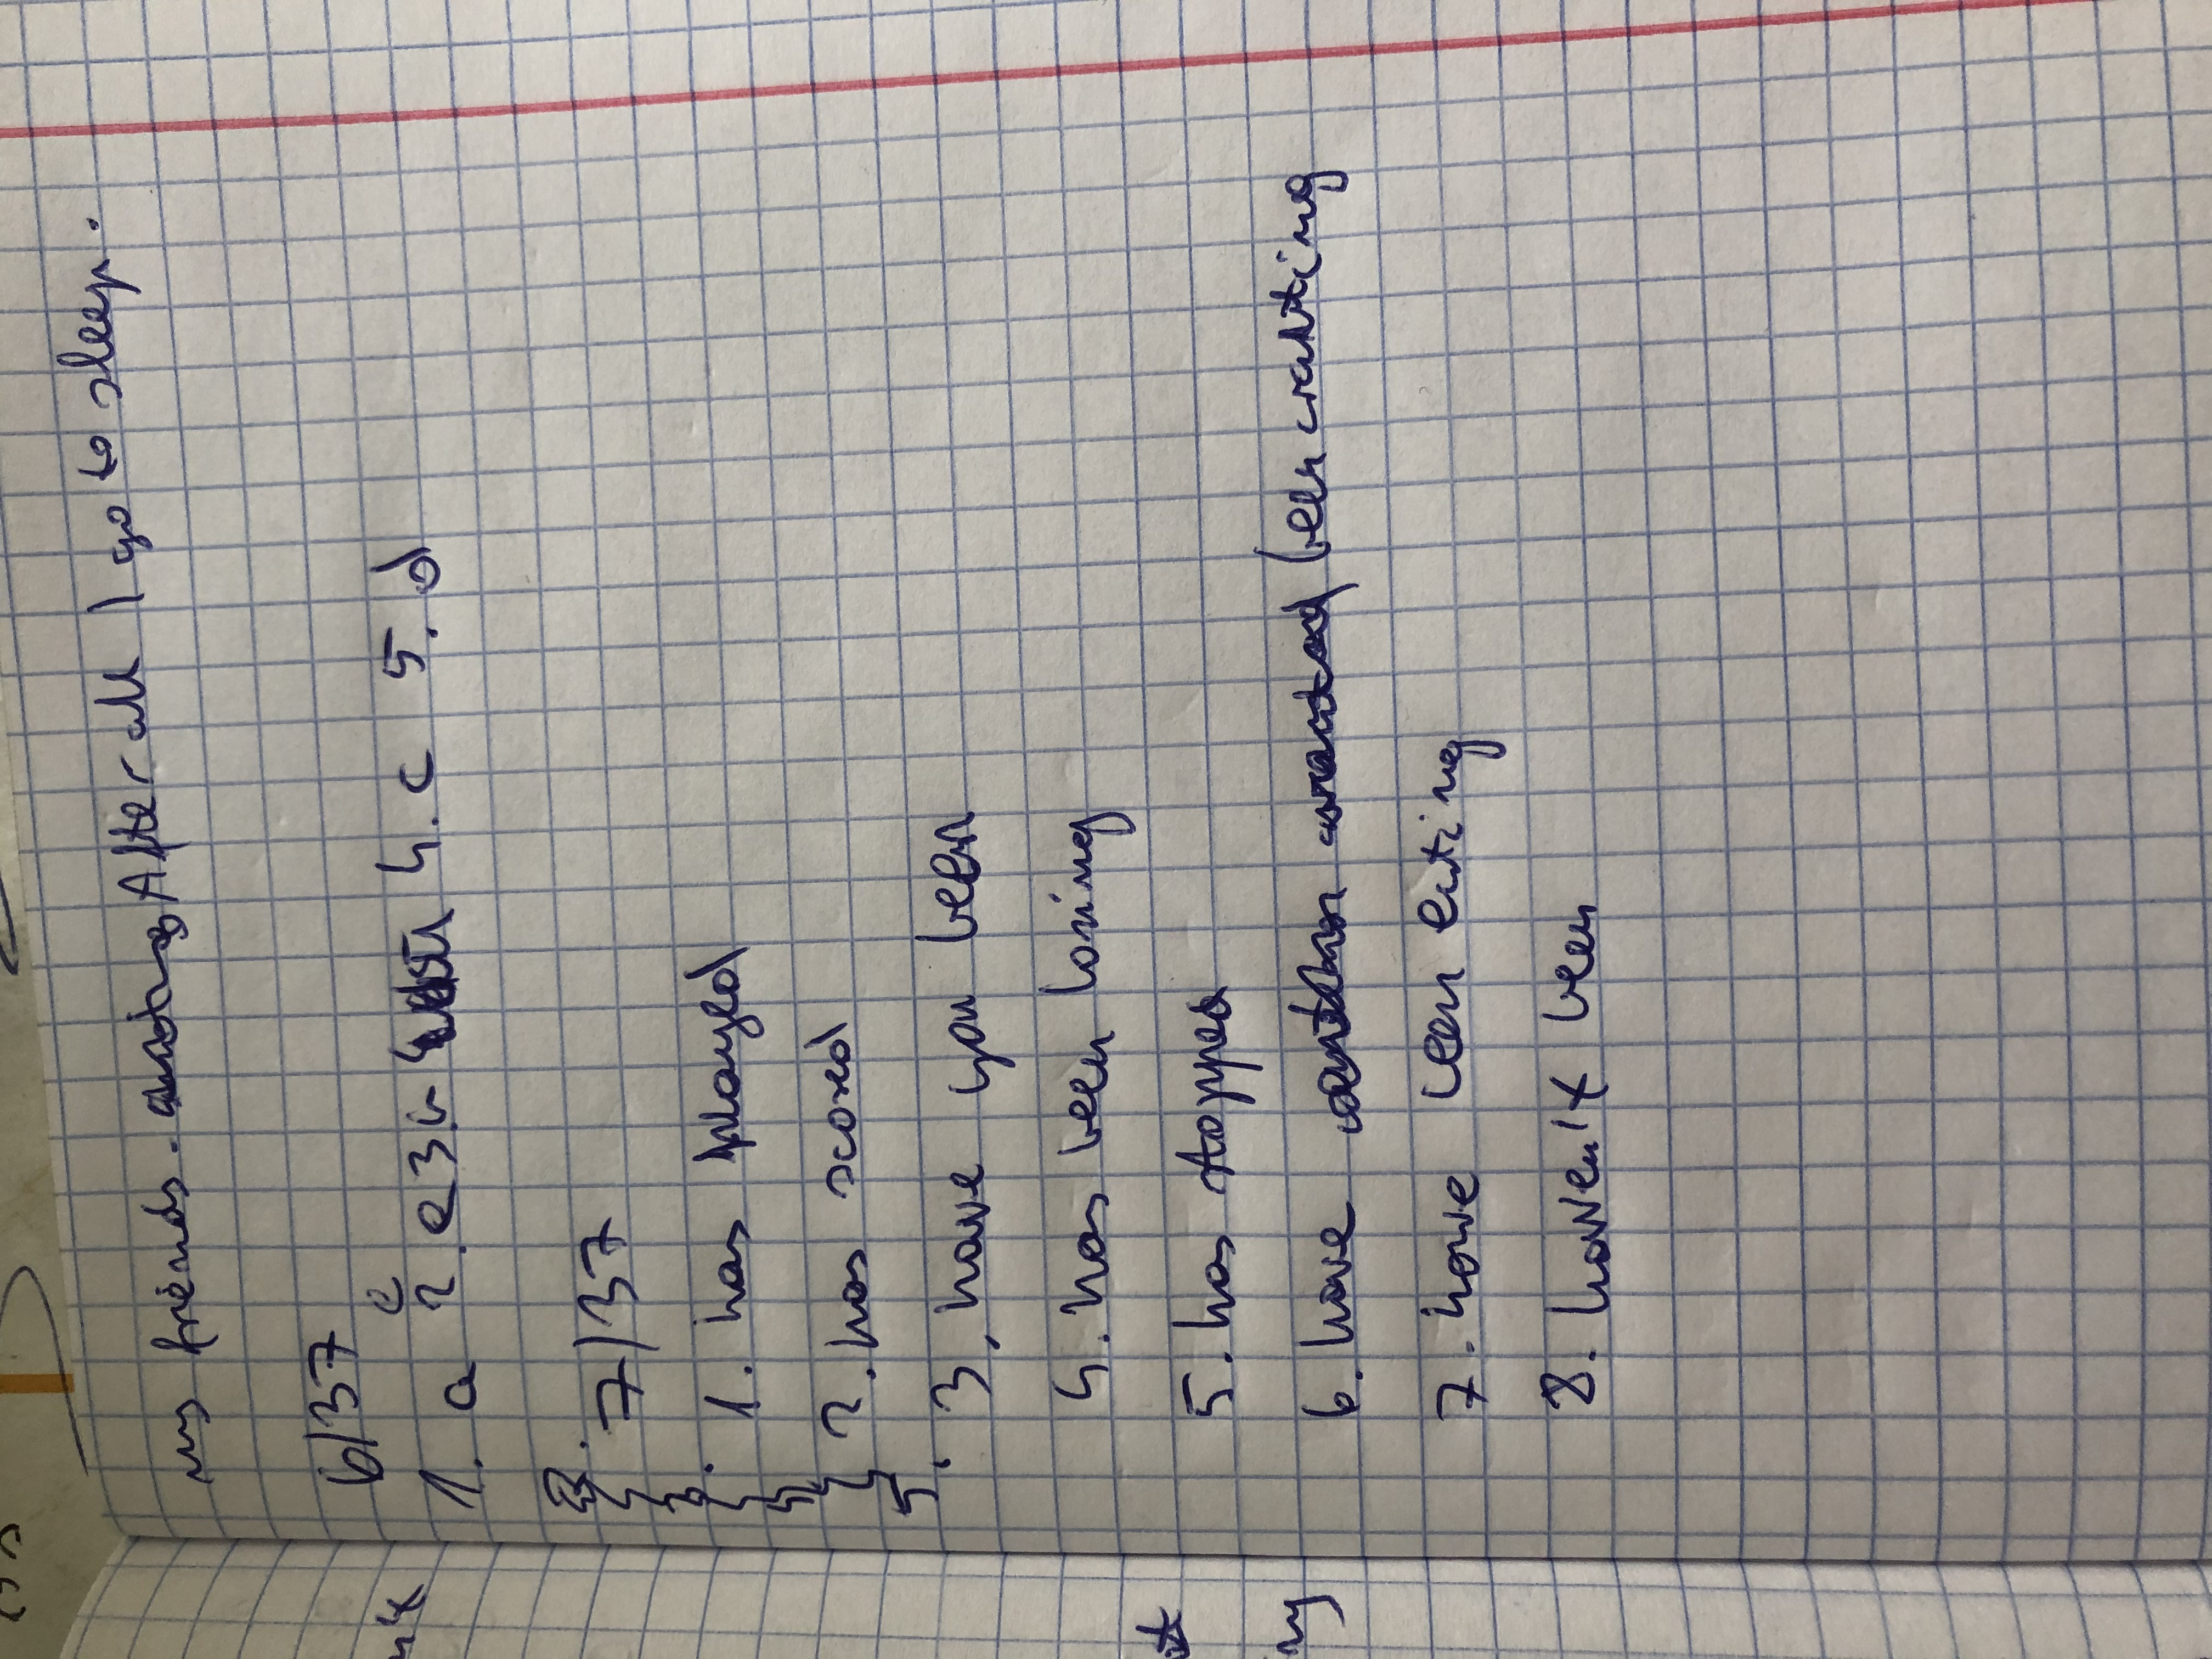 my friends. After all I go to sleep.
6/37
e
1. a 2. e 3. 4. c 5. d
2.
7/37
3.
1. has played
2. has scored
5.
3. have you been
4. has been losing
5. has stopped
6. have been waiting
7. have been eating
8. haven't been